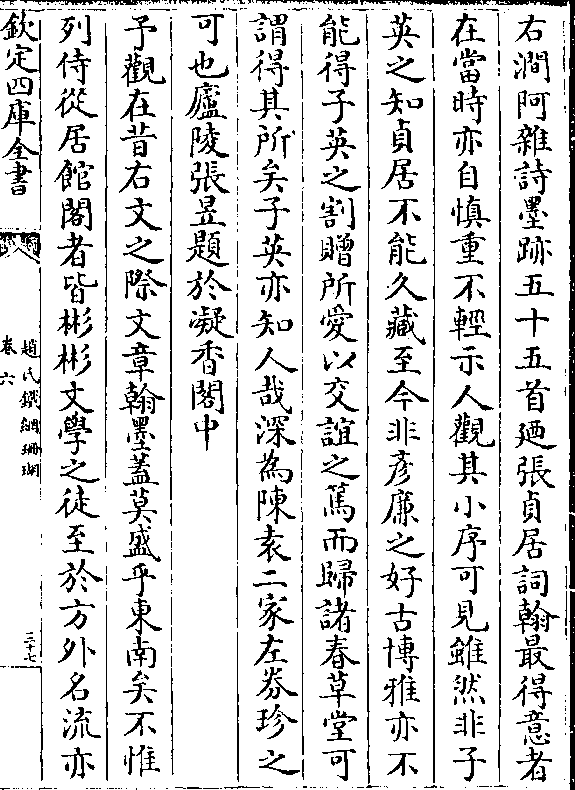 右澗阿雜詩墨跡五十五首廼張貞居詞翰最得意者
在當時亦自慎重不輕示人觀其小序可見雖然非子
英之知貞居不能久藏至今非彦廉之好古博雅亦不
能得子英之割贈所愛以交誼之篤而歸諸春草堂可
謂得其所矣子英亦知人哉深為陳袁二家左劵珍之
可也廬陵張昱題於凝香閣中
予觀在昔右文之際文章翰墨蓋莫盛乎東南矣不惟
列侍從居館閣者皆彬彬文學之徒至於方外名流亦
欽定四庫全書
趙氏鐵網珊瑚
卷六
三十七